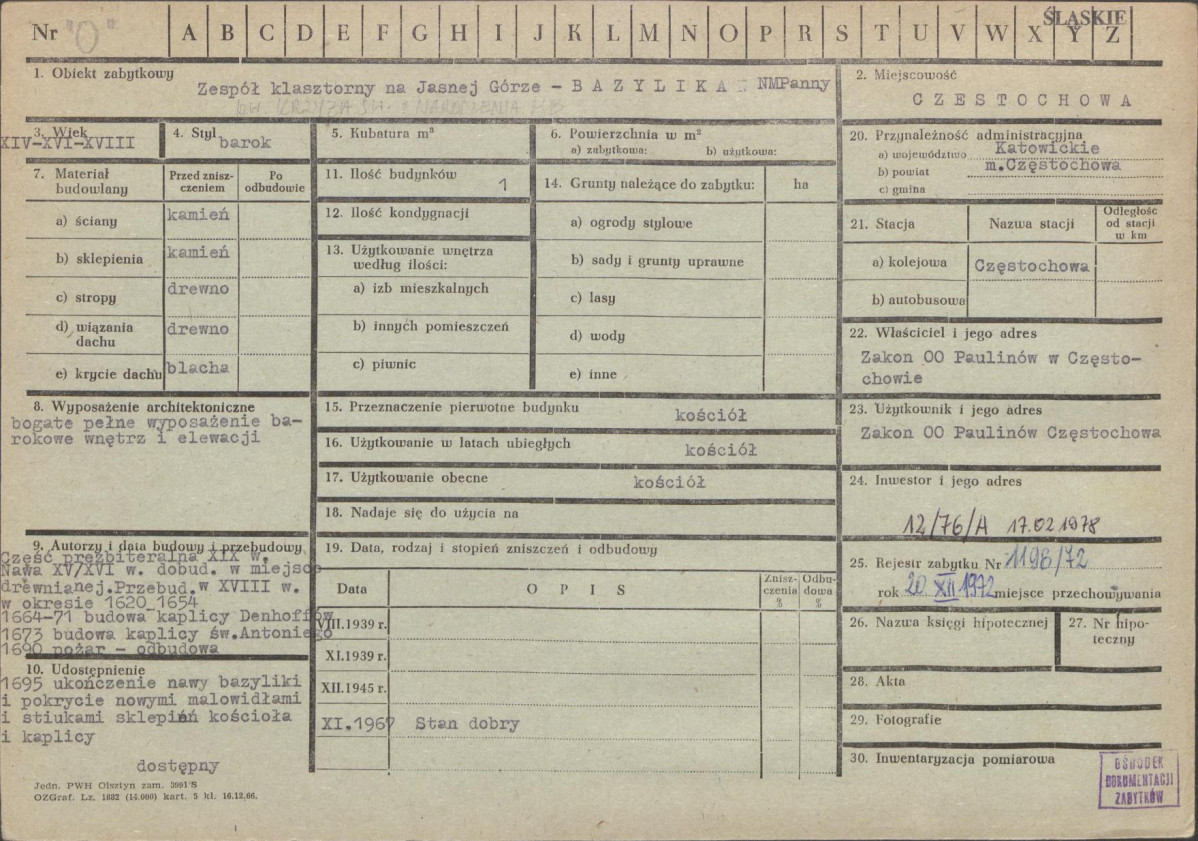 ŚLĄSKIE
Nr "O" A B C D E F G H I J K L M N O P R S T U V W X Y Z
1. Obiekt zabytkowy
Zespół klasztorny na Jasnej Górze - B A Z Y L I K A NMPanny
2. Miejscowość
C Z E S T O C H O W A
3. Wiek
XIV-XVI-XVIII
4. Styl
barok
5. Kubatura m³
6. Powierzchnia w m²
a) zabytkowa: b) użytkowa:
7. Materiał budowlany
Przed znisz-
czeniem
Po
odbudowie
a) ściany kamień
b) sklepienia kamień
c) stropy drewno
d) wiązania
dachu drewno
e) krycie dachu blacha
8. Wyposażenie architektoniczne
bogate pełne wyposażenie ba-
rokowe wnętrz i elewacji
9. Autorzy i data budowy i przebudowy
Część prezbiteralna XIX w.
Nawa XV/XVI w. dobud. w miejsce
drewnianej.Przebud.w XVIII w.
w okresie 1620 1654
1664-71 budowa kaplicy Denhoffów
1673 budowa kaplicy św.Antoniego
1690 pożar - odbudowa
10. Udostępnienie
1695 ukończenie nawy bazyliki
i pokrycie nowymi malowidłami
i stiukami sklepień kościoła
i kaplicy
dostępny
Jedn. PWH Olsztyn zam. 5991 S
OZGraf. Lz. 1882 (14.000) kart. 5 kl. 16.12.66.
11. Ilość budynków 1
12. Ilość kondygnacji
13. Użytkowanie wnętrza
według ilości:
a) izb mieszkalnych
b) innych pomieszczeń
c) piwnic
14. Grunty należące do zabytku: ha
a) ogrody stylowe
b) sady i grunty uprawne
c) lasy
d) wody
e) inne
15. Przeznaczenie pierwotne budynku kościół
16. Użytkowanie w latach ubiegłych kościół
17. Użytkowanie obecne kościół
18. Nadaje się do użycia na
19. Data, rodzaj i stopień zniszczeń i odbudowy
Data O P I S Znisz-
czenia
% Odbu-
dowa
%
VIII.1939 r.
XI.1939 r.
XII.1945 r.
XI.1967 Stan dobry
20. Przynależność administracyjna
a) województwo Katowickie
b) powiat m.Częstochowa
c) gmina
21. Stacja Nazwa stacji Odległość
od stacji
w km
a) kolejowa Częstochowa
b) autobusowa
22. Właściciel i jego adres
Zakon OO Paulinów w Często-
chowie
23. Użytkownik i jego adres
Zakon OO Paulinów Częstochowa
24. Inwestor i jego adres
12/76/A 17.02 1978
25. Rejestr zabytku Nr 1196/72
rok 20 XII 1972 miejsce przechowywania
26. Nazwa księgi hipotecznej
27. Nr hipo-
teczny
28. Akta
29. Fotografie
30. Inwentaryzacja pomiarowa
OŚRODEK
DOKUMENTACJI
ZABYTKÓW